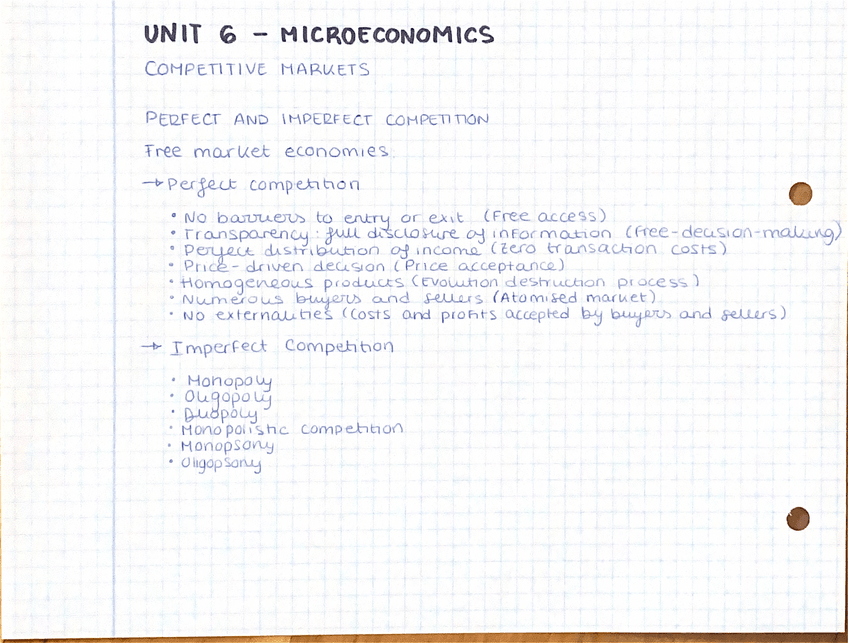 UNIT 6 - MICROECONOMICS
COMPETITIVE MARKETS
PERFECT AND IMPERFECT COMPETITION
Free market economies.
→ Perfect competition
• No barriers to entry or exit (Free access)
• Transparency: full disclosure of information (free-decision-making)
• Perfect distribution of income (zero transaction costs)
• Price-driven decision (Price acceptance)
• Homogeneous products (Evolution destruction process)
• Numerous buyers and sellers (Atomised market)
• No externalities (Costs and profits accepted by buyers and sellers)
→ Imperfect Competition
• Monopoly
• Oligopoly
• Duopoly
• Monopolistic competition
• Monopsony
• Oligopsony